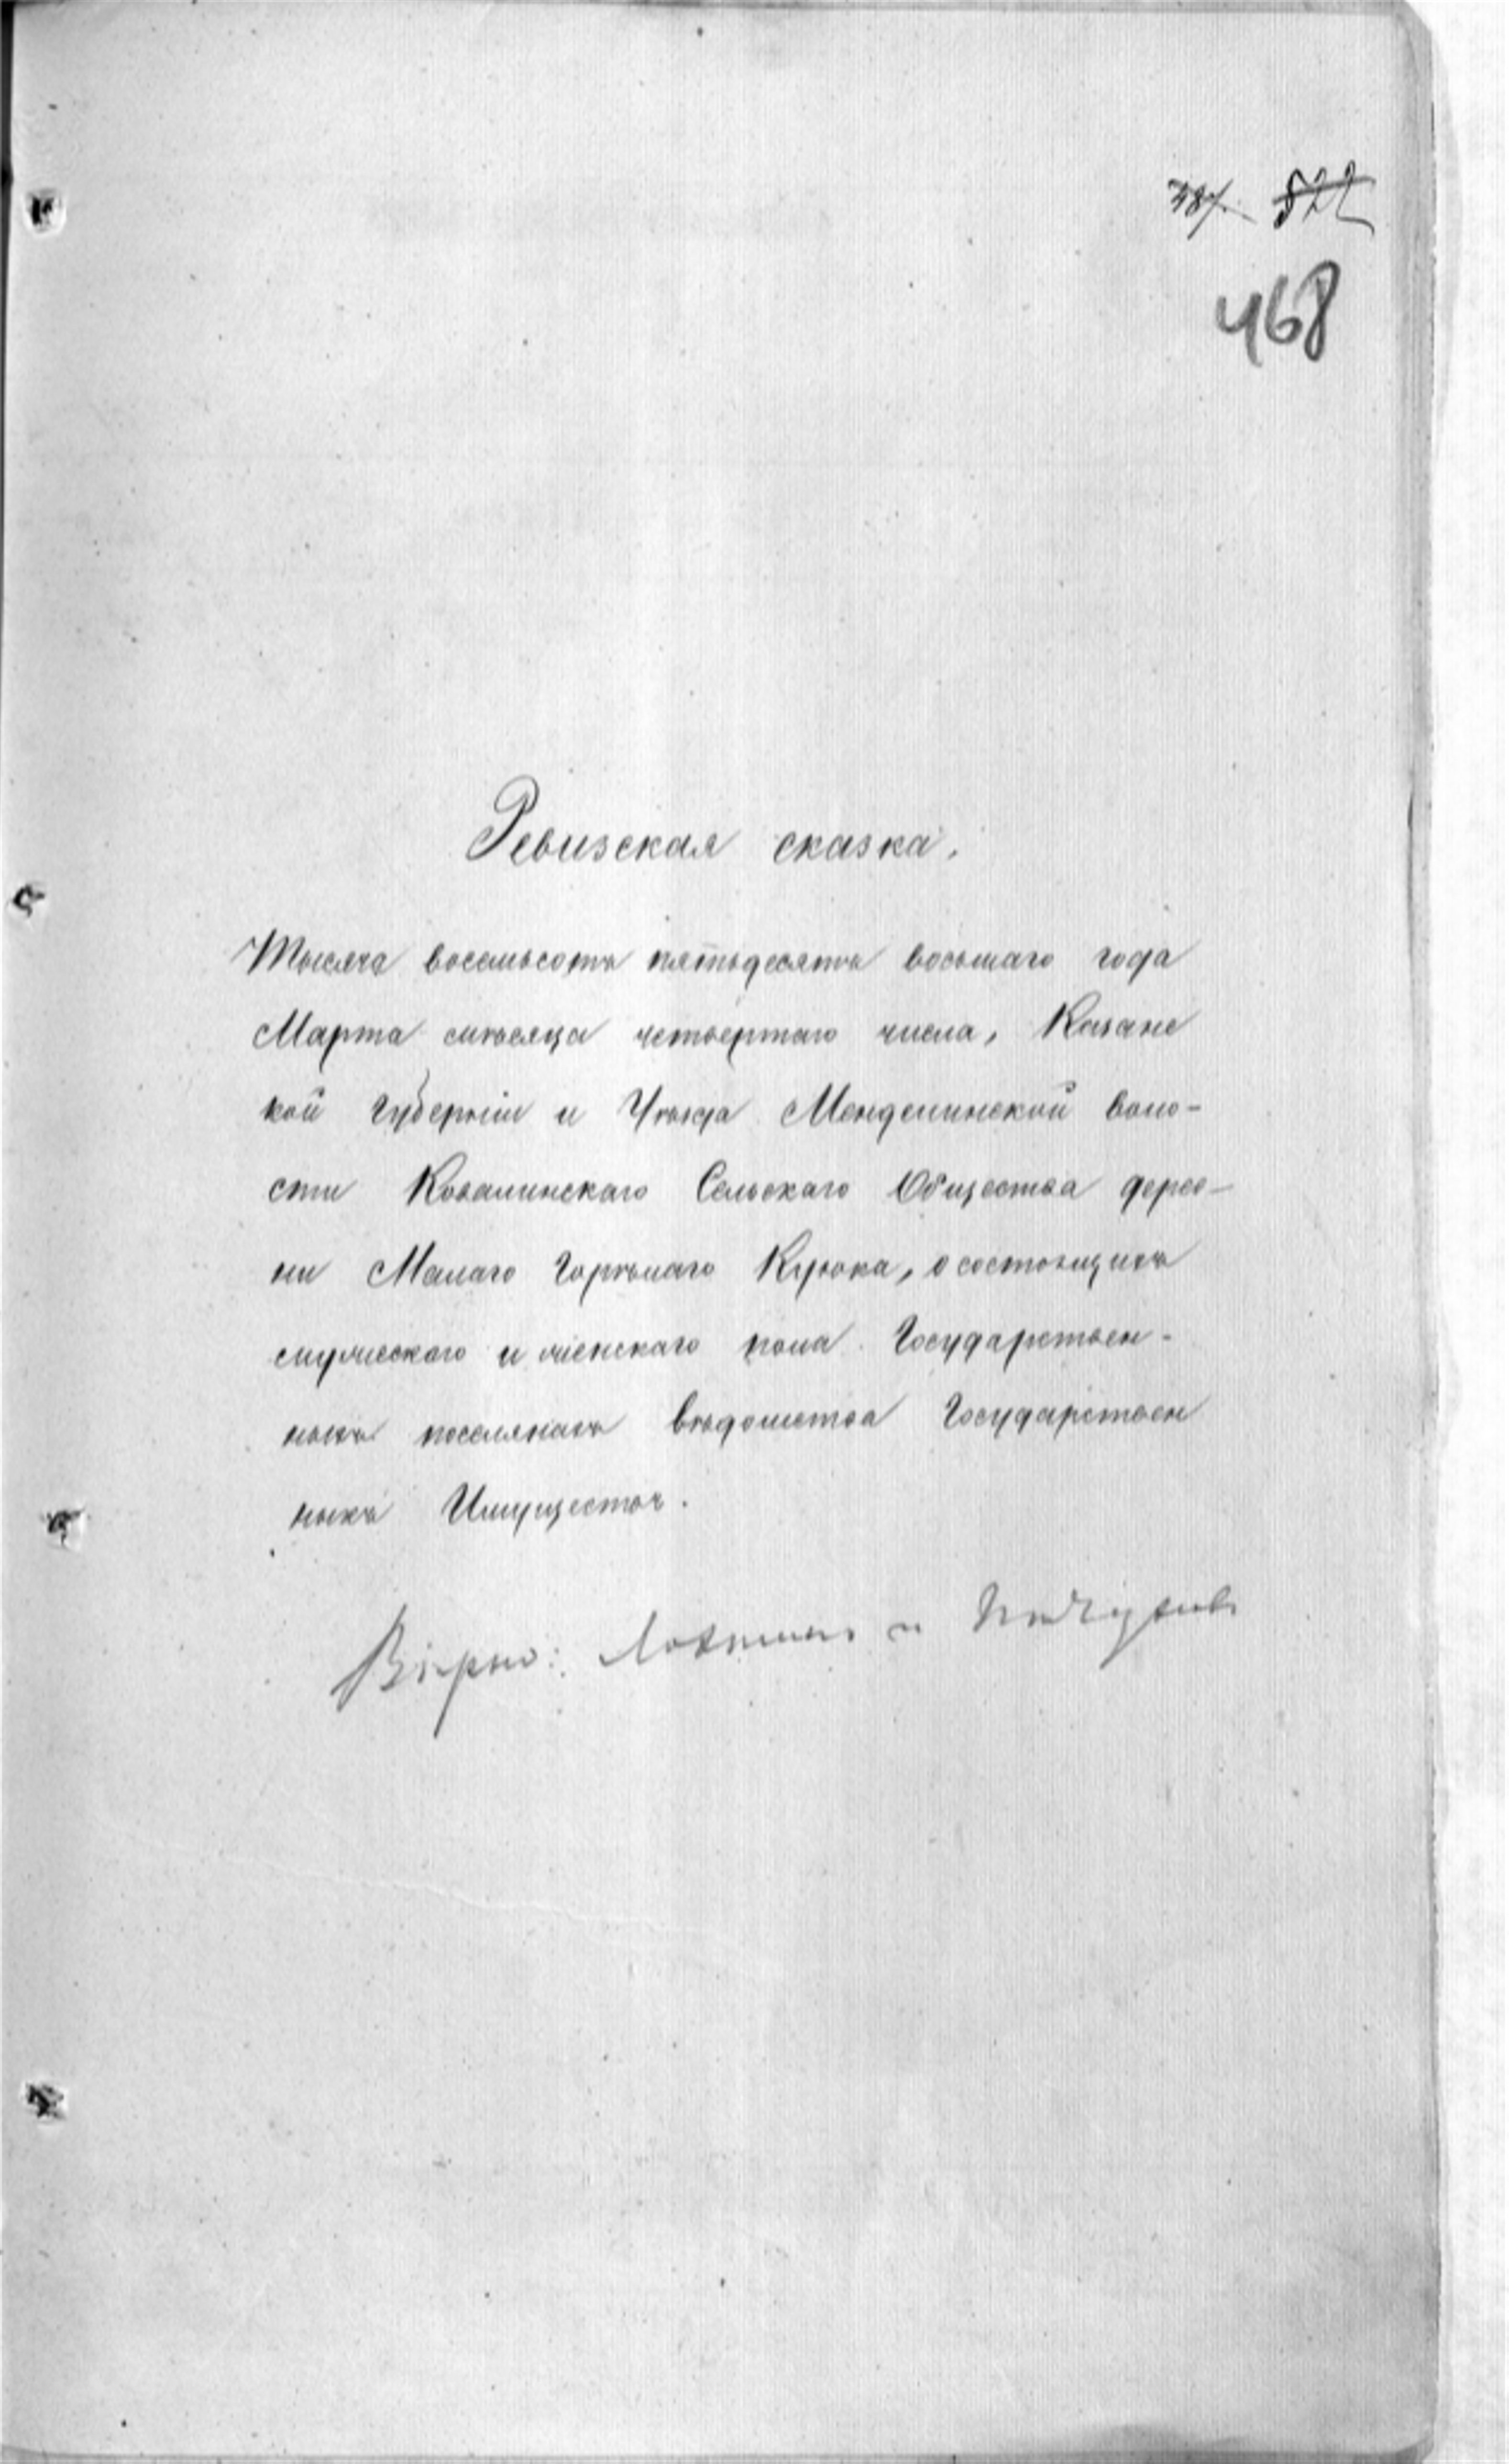 468
Ревизская сказка.
Тысяча восемьсотъ пятьдесятъ восьмаго года
Марта мѣсяца четвертаго числа, Казанс
кой Губерніи и Уѣзда Менделинской воло-
сти Ковалинскаго Сельскаго Общества дерев-
ни Малаго Горѣлаго Курюка, о состоящихъ
мужескаго и женскаго пола Государствен-
ныхъ поселянахъ вѣдомства Государствен
ныхъ Имуществъ.
Вѣрно: